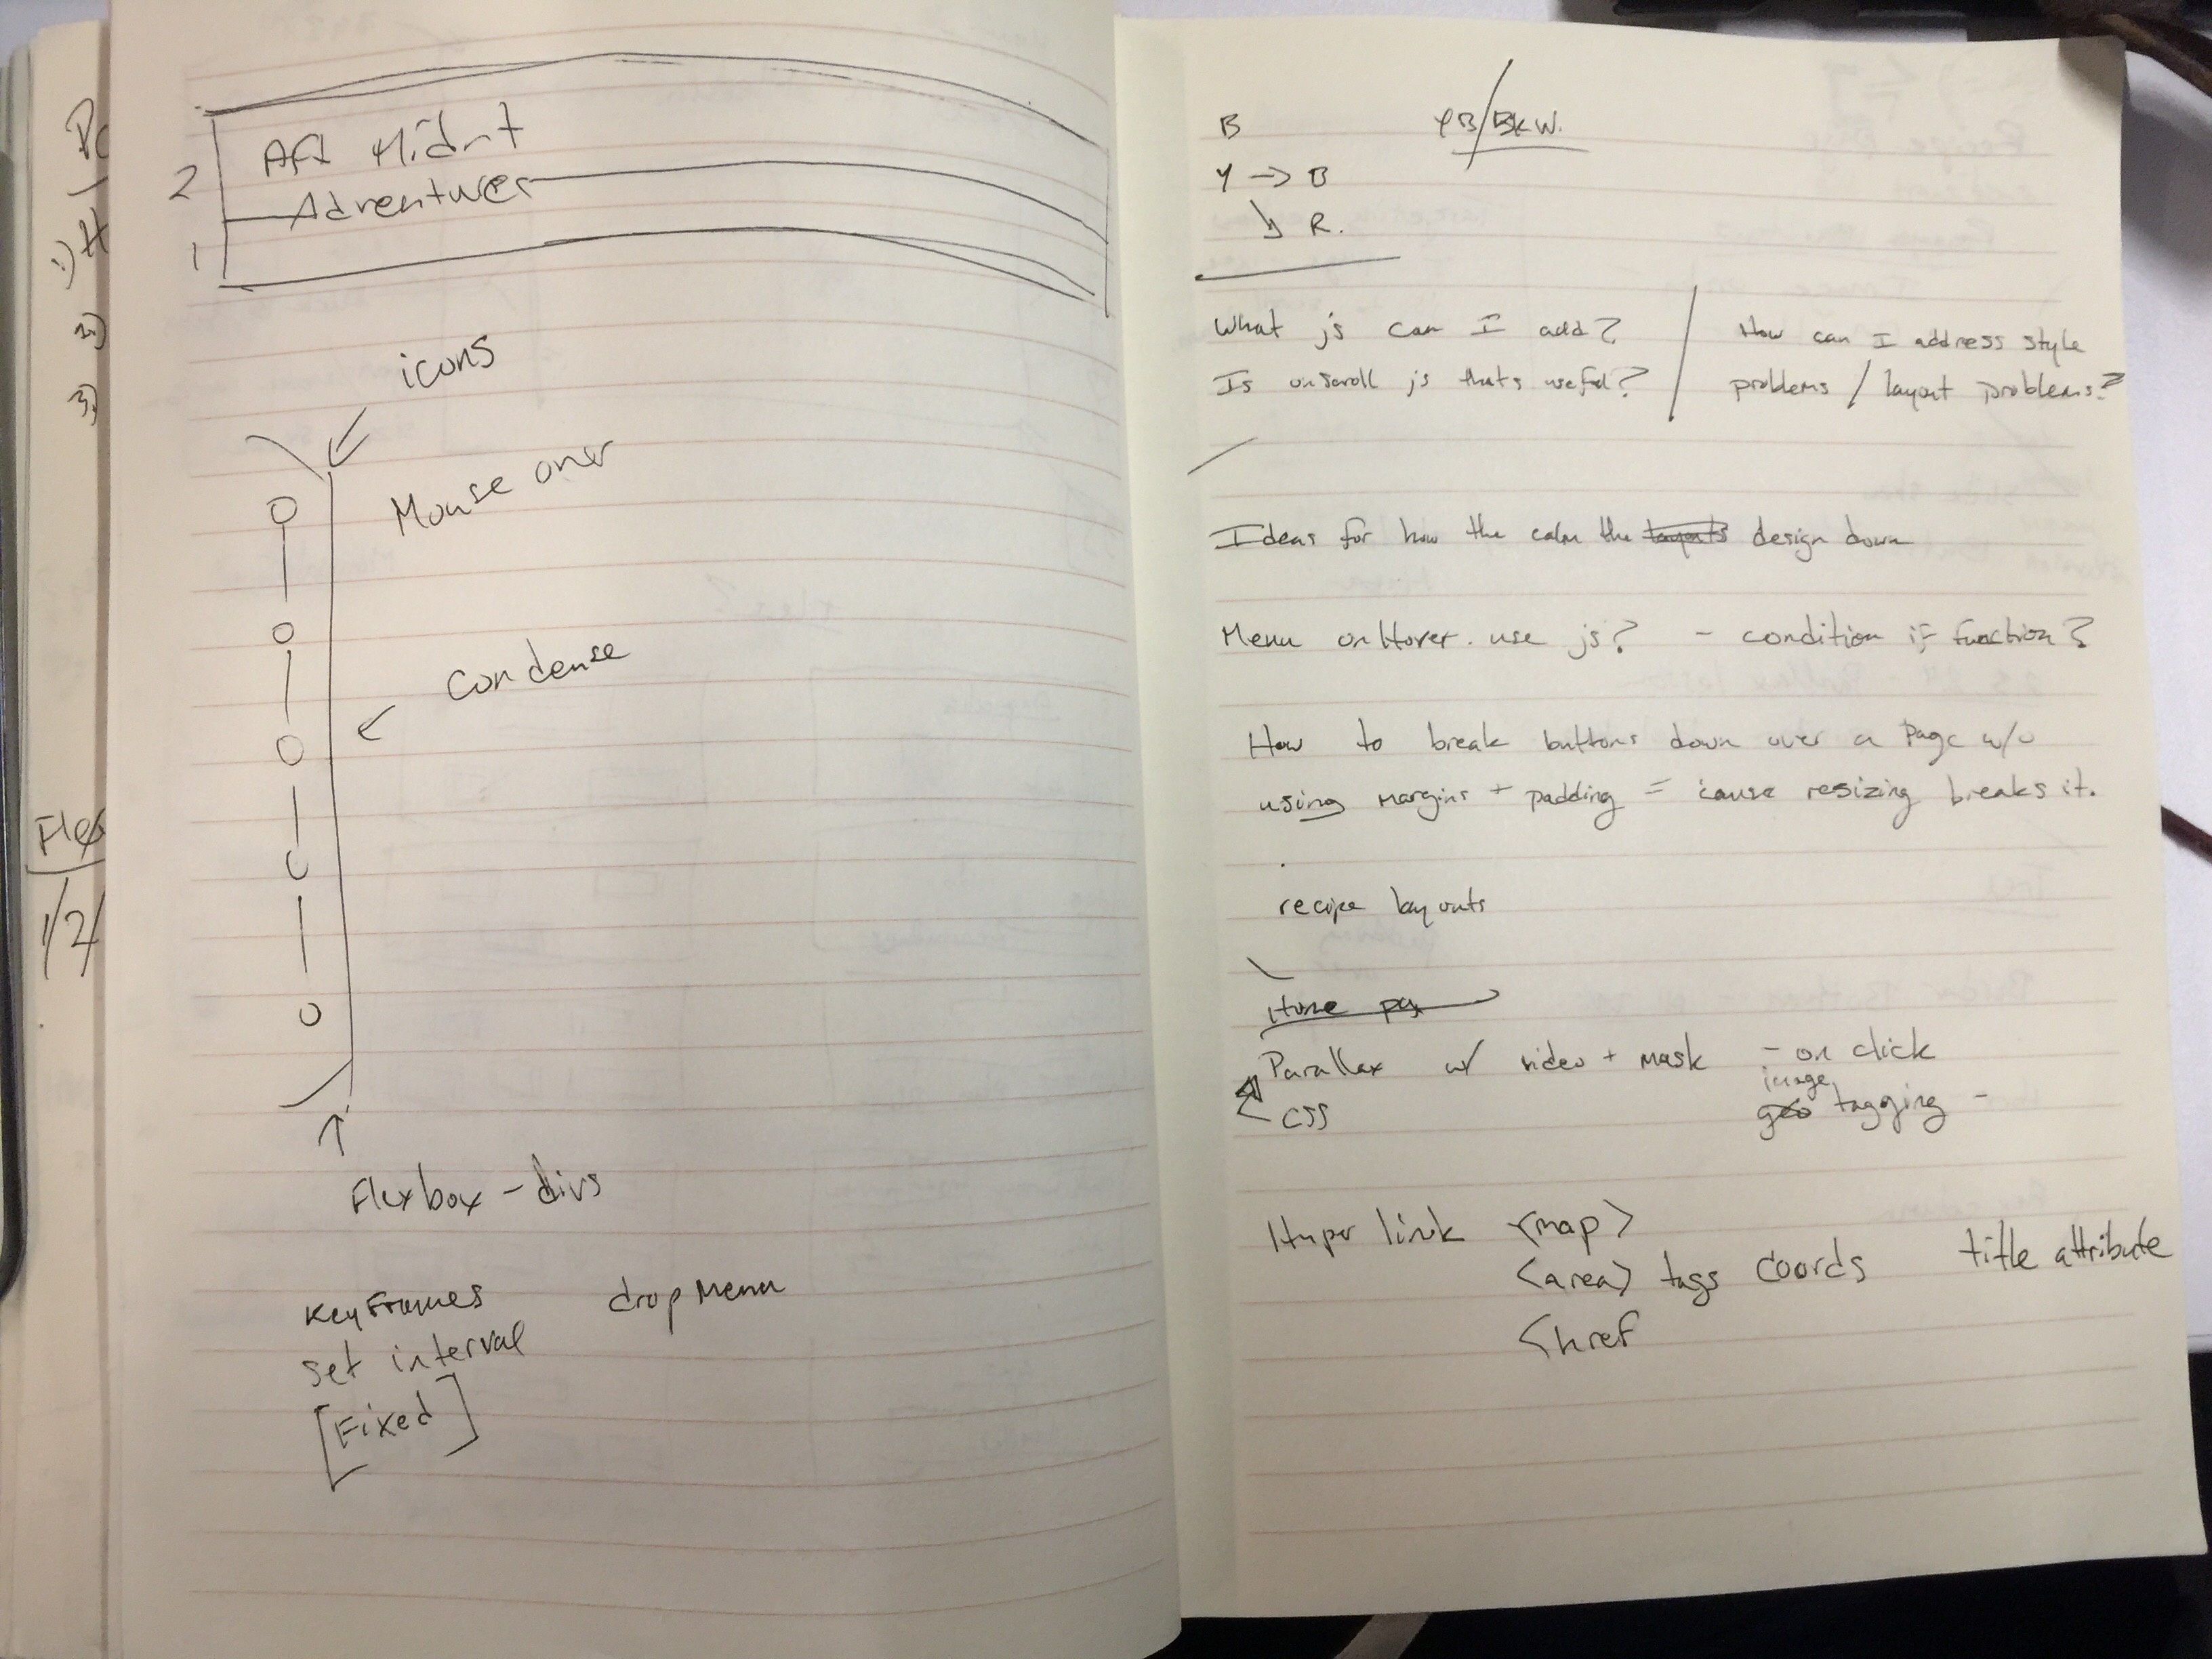 2
1
Adventures
icons
Mouse over
condense
Flexbox - divs
Keyframes drop menu
set interval
[Fixed]
B
Y → B
↘ R.
What js can I add? / How can I address style
Is onscroll js thats useful? / problems / layout problems?
Ideas for how the the design down
Menu onHover. use js? - condition if function?
How to break buttons down over a page w/o
using margins + padding = cause resizing breaks it.
recipe layouts
Home
Parallax w/ video + mask - on click
< CSS image tagging -
Hyper link <map>
<area> tags coords title attribute
<href